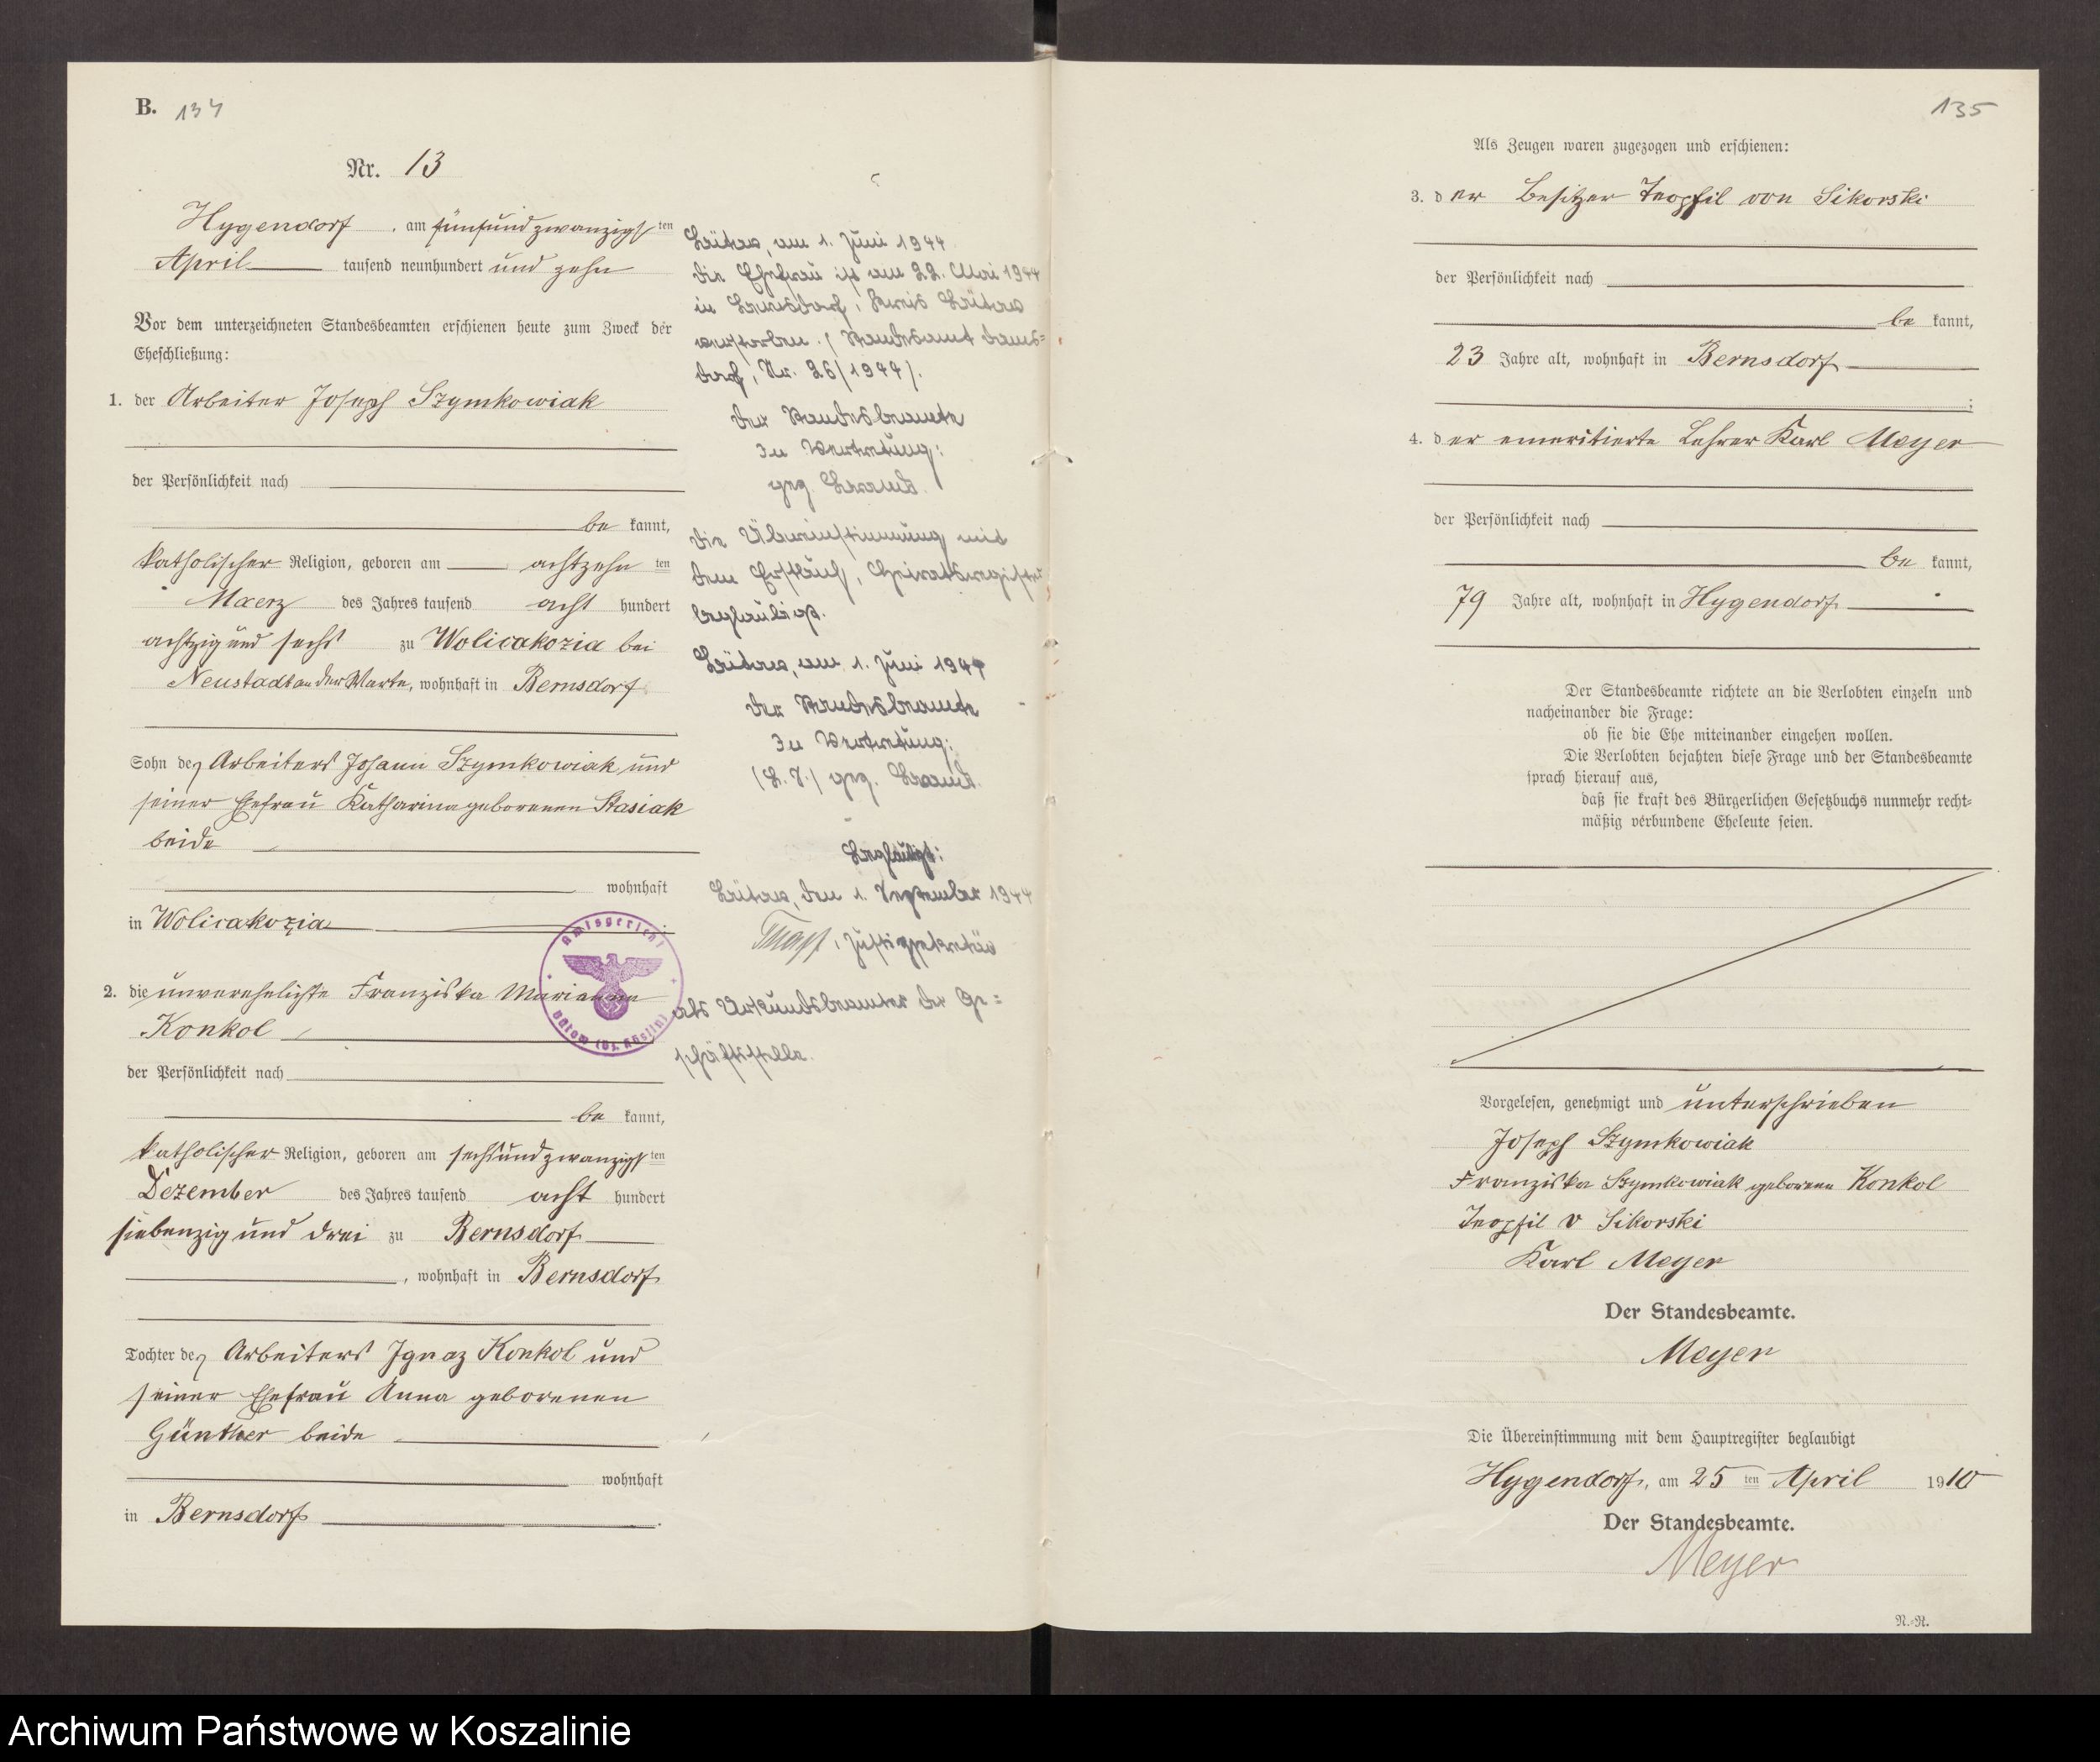 B. 134
Nr. 13
Hygendorf, am fünfundzwanzigsten
April tausend neunhundert und zehn
Vor dem unterzeichneten Standesbeamten erschienen heute zum Zweck der
Eheschließung:
1. der Arbeiter Joseph Szymkowiak
der Persönlichkeit nach
be kannt,
katholischer Religion, geboren am achtzehn ten
Maerz des Jahres tausend acht hundert
achtzig und sechs zu Wolicakozia bei
Neustadt an der Warte, wohnhaft in Bernsdorf
Sohn des Arbeiters Johann Szymkowiak und
seiner Ehefrau Katharina geborenen Stasiak
beide
wohnhaft
in Wolicakozia
2. die unverehelichte Franziska Marianne
Konkol
der Persönlichkeit nach
be kannt,
katholischer Religion, geboren am sechsundzwanzigsten
Dezember des Jahres tausend acht hundert
siebenzig und drei zu Bernsdorf
, wohnhaft in Bernsdorf
Tochter des Arbeiters Ignaz Konkol und
seiner Ehefrau Anna geborenen
Günther beide
wohnhaft
in Bernsdorf
Bütow, am 1. Juni 1944
Die Ehefrau ist am 22. Mai 1944
in Bernsdorf, Kreis Bütow
verstorben. (Standesamt Dams=
dorf, Nr. 26/1944).
Der Standesbeamte
In Vertretung:
gez.
Die Übereinstimmung mit
dem Erstbuch, Heiratsregister
beglaubigt.
Bütow, am 1. Juni 1944
Der Standesbeamte
In Vertretung:
(L. S.) gez.
Beglaubigt:
Bütow, den 1. September 1944
, Justizsekretär
als Urkundsbeamter der Ge=
schäftsstelle.
Amtsgericht
Bütow (Bz. Köslin)
135
Als Zeugen waren zugezogen und erschienen:
3. der Besitzer Teophil von Sikorski
der Persönlichkeit nach
be kannt,
23 Jahre alt, wohnhaft in Bernsdorf
;
4. der emeritierte Lehrer Karl Meyer
der Persönlichkeit nach
be kannt,
79 Jahre alt, wohnhaft in Hygendorf
Der Standesbeamte richtete an die Verlobten einzeln und
nacheinander die Frage:
ob sie die Ehe miteinander eingehen wollen.
Die Verlobten bejahten diese Frage und der Standesbeamte
sprach hierauf aus,
daß sie kraft des Bürgerlichen Gesetzbuchs nunmehr recht=
mäßig verbundene Eheleute seien.
Vorgelesen, genehmigt und unterschrieben
Joseph Szymkowiak
Franziska Szymkowiak geborene Konkol
Teophil v Sikorski
Karl Meyer
Der Standesbeamte.
Meyer
Die Übereinstimmung mit dem Hauptregister beglaubigt
Hygendorf, am 25 ten April 1910
Der Standesbeamte.
Meyer
N.-R.
Archiwum Państwowe w Koszalinie